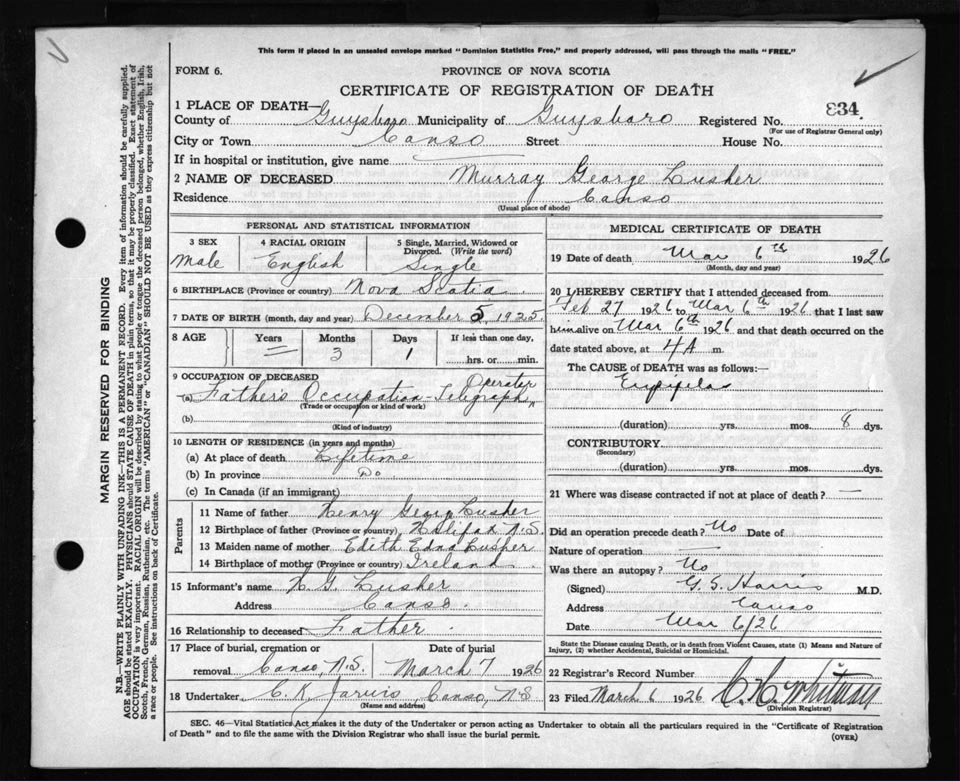 This form if placed in an unsealed envelope marked "Dominion Statistics Free," and properly addressed, will pass through the mails "FREE."
FORM 6.
PROVINCE OF NOVA SCOTIA
CERTIFICATE OF REGISTRATION OF DEATH
1 PLACE OF DEATH—
County of Guysboro Municipality of Guysboro Registered No. 834
(For use of Registrar General only)
City or Town Canso Street House No.
If in hospital or institution, give name
2 NAME OF DECEASED Murray George Lusher
Residence Canso
(Usual place of abode)
PERSONAL AND STATISTICAL INFORMATION
3 SEX 4 RACIAL ORIGIN 5 Single, Married, Widowed or Divorced. (Write the word)
Male English Single
6 BIRTHPLACE (Province or country) Nova Scotia
7 DATE OF BIRTH (month, day and year) December 5, 1925
8 AGE Years Months Days If less than one day,
— 3 1 hrs. or min.
9 OCCUPATION OF DECEASED Operator
(a) Father's Occupation - Telegraph
(Trade or occupation or kind of work)
(b)
(Kind of industry)
10 LENGTH OF RESIDENCE (in years and months)
(a) At place of death Lifetime
(b) In province Do
(c) In Canada (if an immigrant)
Parents
11 Name of father Henry Lusher
12 Birthplace of father (Province or country) Halifax N.S.
13 Maiden name of mother Edith Edna Lusher
14 Birthplace of mother (Province or country) Ireland
15 Informant's name H. G. Lusher
Address Canso.
16 Relationship to deceased Father.
17 Place of burial, cremation or Date of burial
removal Canso, N.S. March 7 1926
18 Undertaker C. K. Jarvis, Canso, N S
(Name and address)
MEDICAL CERTIFICATE OF DEATH
19 Date of death Mar 6th 1926
(Month, day and year)
20 I HEREBY CERTIFY that I attended deceased from
Feb 27 1926 to Mar 6th 1926 that I last saw
him alive on Mar 6th 1926 and that death occurred on
date stated above, at 4 A m.
The CAUSE OF DEATH was as follows:—
(duration) yrs. mos. 8 dys.
CONTRIBUTORY.
(Secondary)
(duration) yrs. mos. dys.
21 Where was disease contracted if not at place of death? —
Did an operation precede death? No Date of
Nature of operation —
Was there an autopsy? No
(Signed) G. S. Harris M.D.
Address Canso
Date Mar 6/26
State the Disease causing Death, or in death from Violent Causes, state (1) Means and Nature of
Injury, (2) whether Accidental, Suicidal or Homicidal.
22 Registrar's Record Number
23 Filed March 6 1926 C. H. Whitman
(Division Registrar)
SEC. 46—Vital Statistics Act makes it the duty of the Undertaker or person acting as Undertaker to obtain all the particulars required in the "Certificate of Registration
of Death" and to file the same with the Division Registrar who shall issue the burial permit.
(OVER)
MARGIN RESERVED FOR BINDING
N.B.—WRITE PLAINLY WITH UNFADING INK—THIS IS A PERMANENT RECORD. Every item of information should be carefully supplied.
AGE should be stated EXACTLY. PHYSICIANS should STATE CAUSE OF DEATH in plain terms, so that it may be properly classified. Exact statement of
OCCUPATION is very important. RACIAL ORIGIN will be described by stating to what people or tongue the deceased person belonged, whether English, Irish,
Scotch, French, German, Russian, Ruthenian, etc. The terms "AMERICAN" or "CANADIAN" SHOULD NOT BE USED as they express citizenship but not
a race or people. See instructions on back of Certificate.